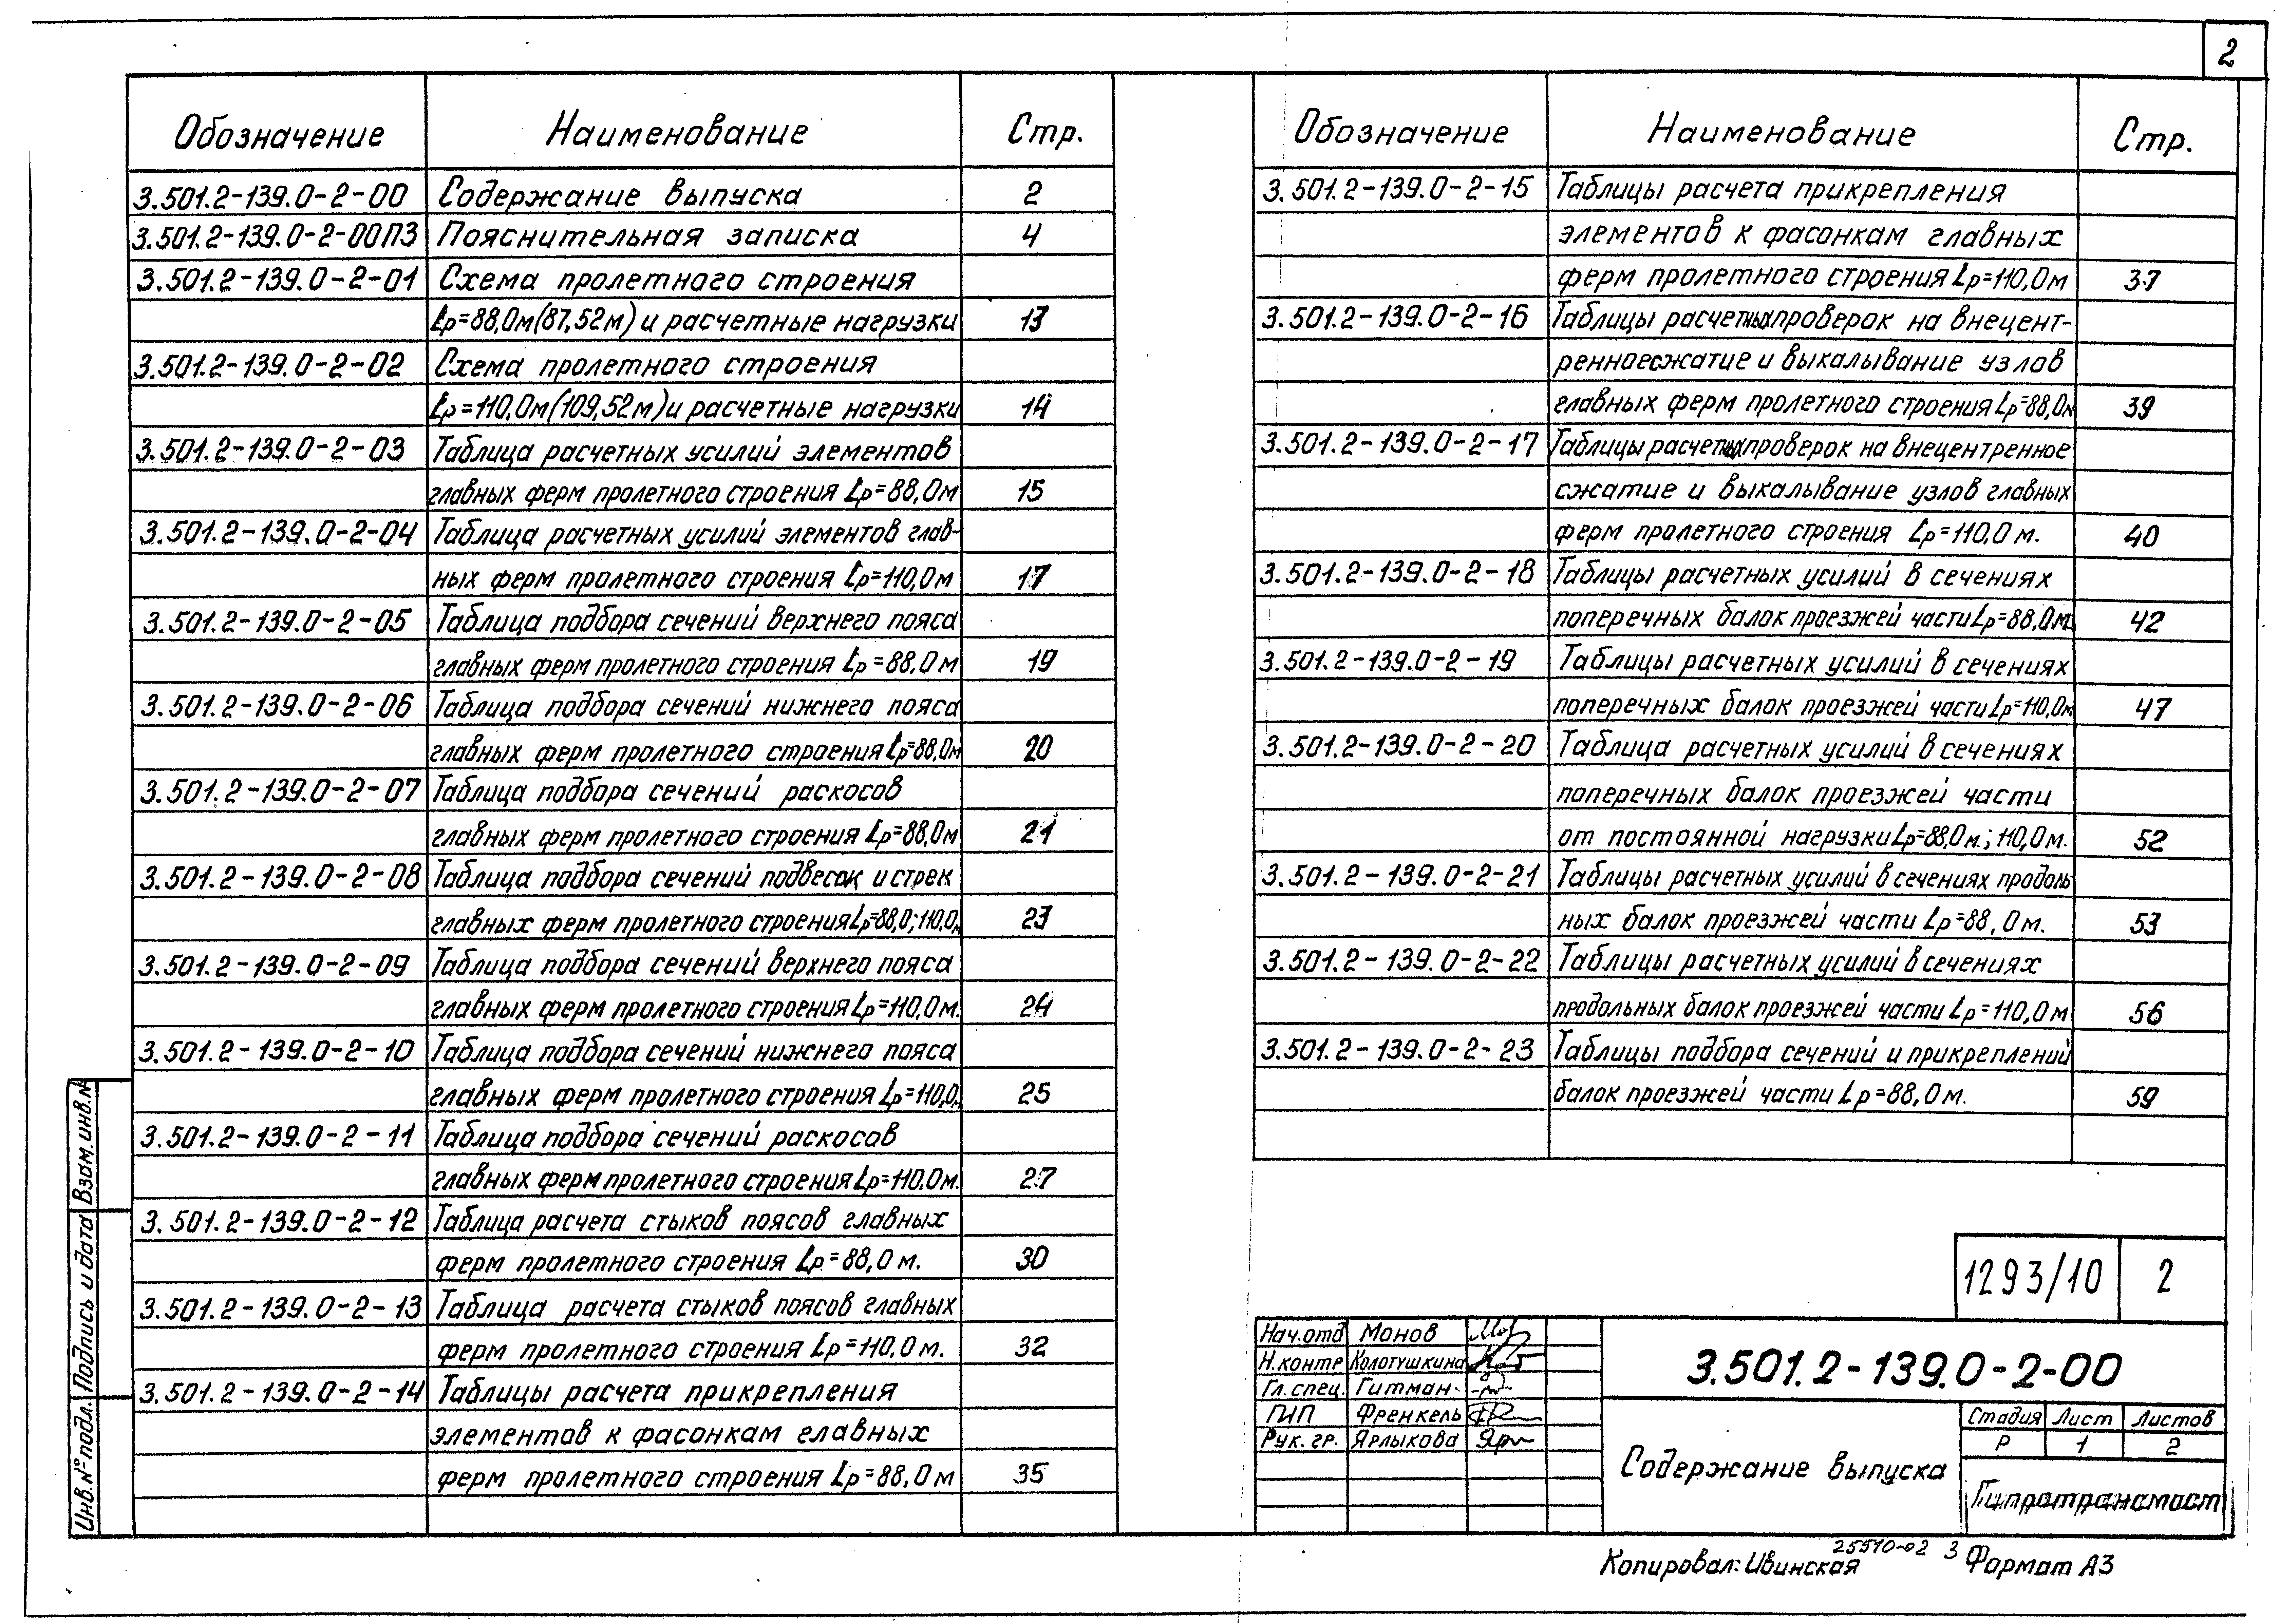 2
Обозначение Наименование Стр.
3.501.2-139.0-2-00 Содержание выпуска 2
3.501.2-139.0-2-00ПЗ Пояснительная записка 4
3.501.2-139.0-2-01 Схема пролетного строения
Lр=88,0м(87,52м) и расчетные нагрузки 13
3.501.2-139.0-2-02 Схема пролетного строения
Lр=110,0м(109,52м) и расчетные нагрузки 14
3.501.2-139.0-2-03 Таблица расчетных усилий элементов
главных ферм пролетного строения Lр=88,0м 15
3.501.2-139.0-2-04 Таблица расчетных усилий элементов глав-
ных ферм пролетного строения Lр=110,0м 17
3.501.2-139.0-2-05 Таблица подбора сечений верхнего пояса
главных ферм пролетного строения Lр=88,0м 19
3.501.2-139.0-2-06 Таблица подбора сечений нижнего пояса
главных ферм пролетного строения Lр=88,0м 20
3.501.2-139.0-2-07 Таблица подбора сечений раскосов
главных ферм пролетного строения Lр=88,0м 21
3.501.2-139.0-2-08 Таблица подбора сечений подвесок и стрек
главных ферм пролетного строения Lр=88,0; 110,0м 23
3.501.2-139.0-2-09 Таблица подбора сечений верхнего пояса
главных ферм пролетного строения Lр=110,0м. 24
3.501.2-139.0-2-10 Таблица подбора сечений нижнего пояса
главных ферм пролетного строения Lр=110,0м 25
3.501.2-139.0-2-11 Таблица подбора сечений раскосов
главных ферм пролетного строения Lр=110,0м. 27
3.501.2-139.0-2-12 Таблица расчета стыков поясов главных
ферм пролетного строения Lр=88,0м. 30
3.501.2-139.0-2-13 Таблица расчета стыков поясов главных
ферм пролетного строения Lр=110,0м. 32
3.501.2-139.0-2-14 Таблицы расчета прикрепления
элементов к фасонкам главных
ферм пролетного строения Lр=88,0м 35
Обозначение Наименование Стр.
3.501.2-139.0-2-15 Таблицы расчета прикрепления
элементов к фасонкам главных
ферм пролетного строения Lр=110,0м 37
3.501.2-139.0-2-16 Таблицы расчетных проверок на внецент-
ренное сжатие и выкалывание узлов
главных ферм пролетного строения Lр=88,0м 39
3.501.2-139.0-2-17 Таблицы расчетных проверок на внецентренное
сжатие и выкалывание узлов главных
ферм пролетного строения Lр=110,0м. 40
3.501.2-139.0-2-18 Таблицы расчетных усилий в сечениях
поперечных балок проезжей части Lр=88,0м. 42
3.501.2-139.0-2-19 Таблицы расчетных усилий в сечениях
поперечных балок проезжей части Lр=110,0м 47
3.501.2-139.0-2-20 Таблица расчетных усилий в сечениях
поперечных балок проезжей части
от постоянной нагрузки Lр=88,0м.; 110,0м. 52
3.501.2-139.0-2-21 Таблицы расчетных усилий в сечениях продоль-
ных балок проезжей части Lр=88,0м. 53
3.501.2-139.0-2-22 Таблицы расчетных усилий в сечениях
продольных балок проезжей части Lр=110,0м 56
3.501.2-139.0-2-23 Таблицы подбора сечений и прикреплений
балок проезжей части Lр=88,0м. 59
1293/10 2
Нач.отд Монов
Н.контр Колотушкина
Гл.спец. Гитман
ГИП Френкель
Рук.гр. Ярлыкова
3.501.2-139.0-2-00
Содержание выпуска
Стадия Лист Листов
Р 1 2
Гипротрансмост
Инв.№подл. Подпись и дата Взам.инв.№
25510-02 3
Копировал: Ивинская Формат А3